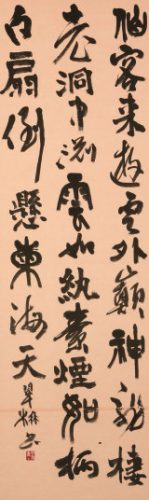 仙客来遊雲外巓神龍棲
老洞中渕雲如紈素煙如柄
白扇倒懸東海天